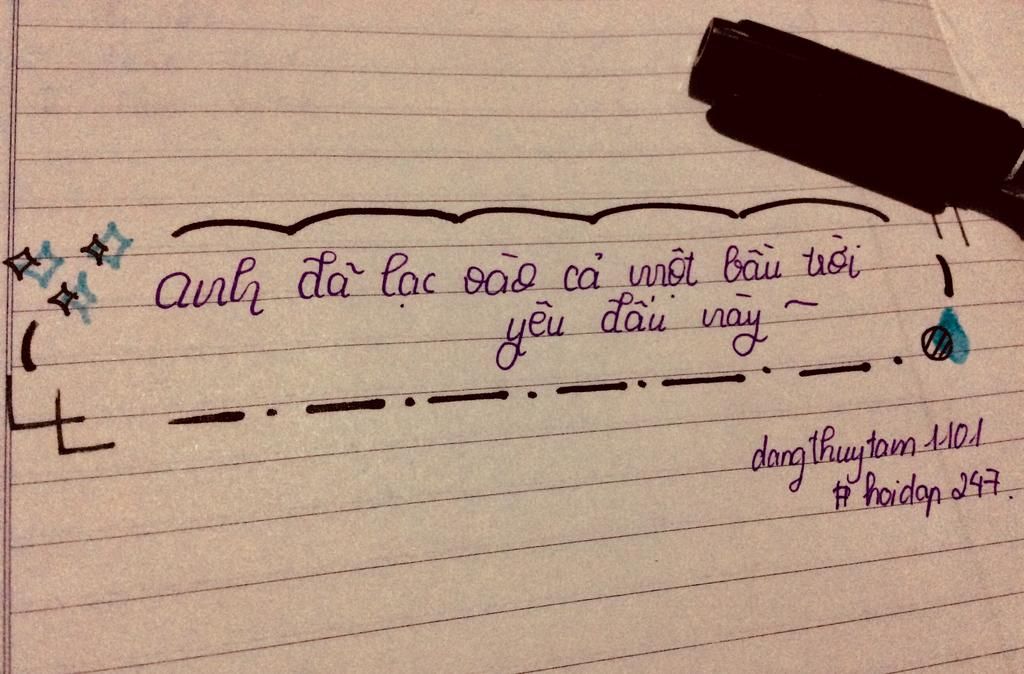 anh đã lạc vào cả một bầu trời
yêu dấu này ~
dangthuytam1101
# hoidap 247.